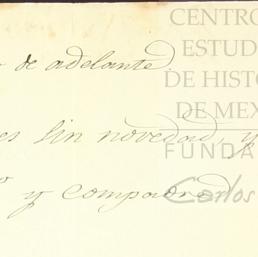 de adelante.
es sin novedad, y
y compadre
CENTRO
ESTUD
DE HISTO
DE MEX
FUNDA
Carlos